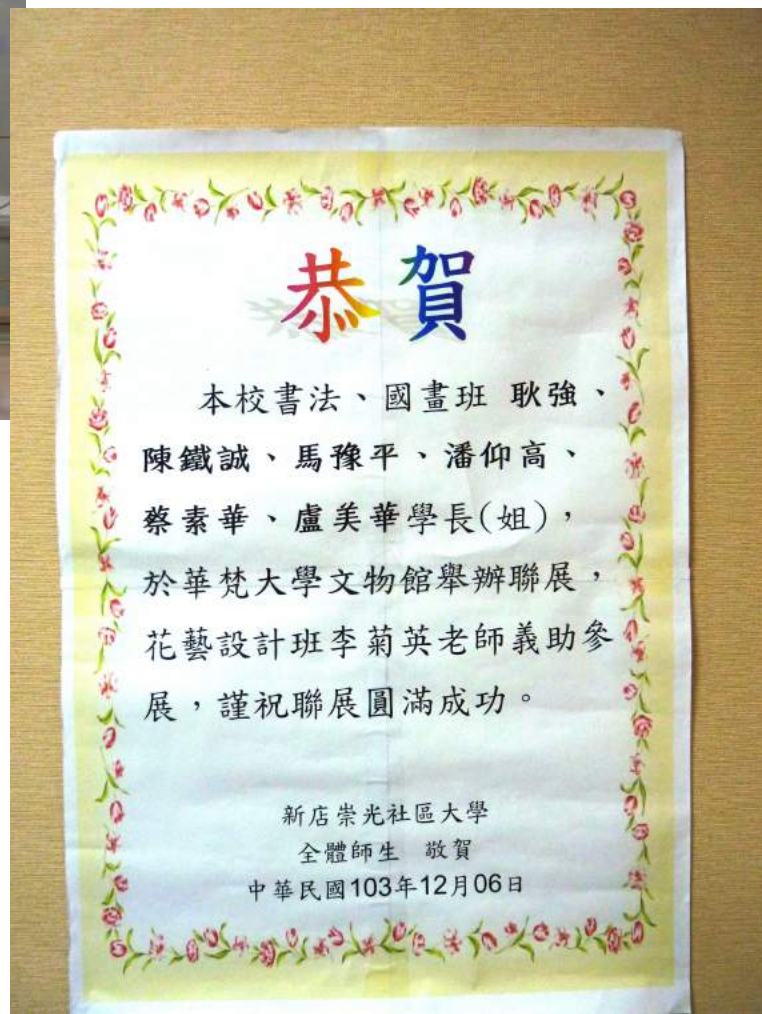 恭賀
本校書法、國畫班 耿強、
陳鐵誠、馬豫平、潘仰高、
蔡素華、盧美華學長(姐)，
於華梵大學文物館舉辦聯展，
花藝設計班李菊英老師義助參
展，謹祝聯展圓滿成功。
新店崇光社區大學
全體師生 敬賀
中華民國103年12月06日